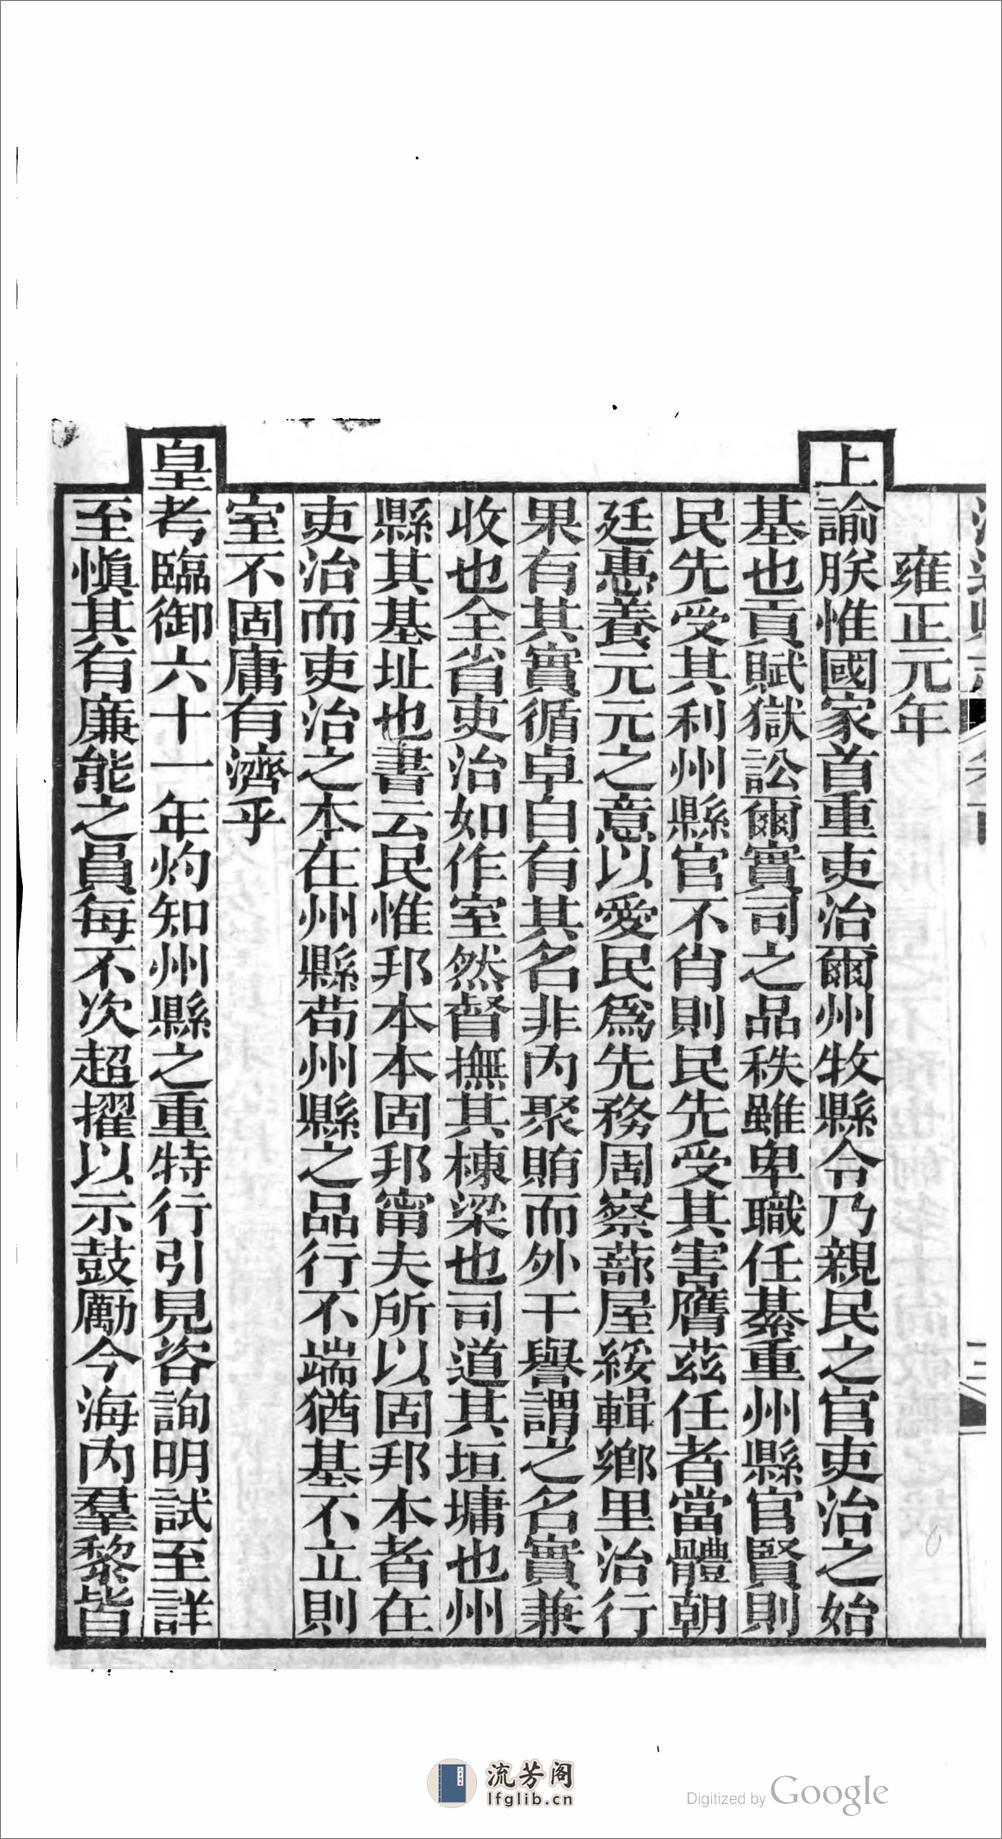 雍正元年
上諭朕惟國家首重吏治爾州牧縣令乃親民之官吏治之始
基也貢賦獄訟爾實司之品秩雖卑職任綦重州縣官賢則
民先受其利州縣官不肖則民先受其害膺茲任者當體朝
廷惠養元元之意以愛民爲先務周察蔀屋綏輯鄉里治行
果有其實循卓自有其名非內聚賄而外干譽謂之名實兼
收也全省吏治如作室然督撫其棟梁也司道其垣墉也州
縣其基址也書云民惟邦本本固邦甯夫所以固邦本者在
吏治而吏治之本在州縣苟州縣之品行不端猶基不立則
室不固庸有濟乎
皇考臨御六十一年灼知州縣之重特行引見咨詢明試至詳
至慎其有廉能之員每不次超擢以示鼓勵今海內羣黎皆
流芳阁
lfglib.cn
Digitized by Google